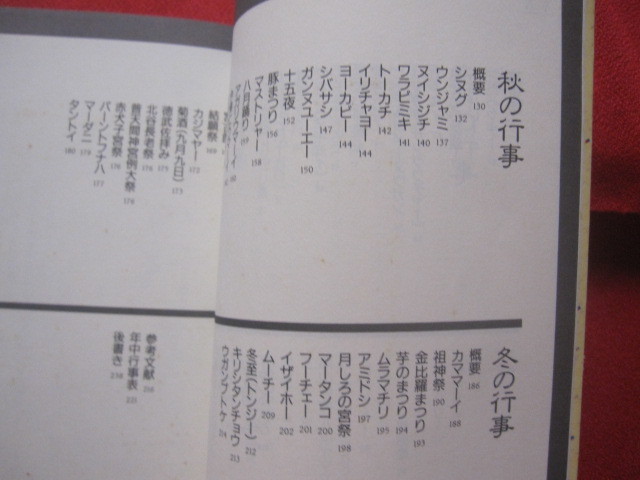 秋の行事
概要 130
シヌグ 132
ウンジャミ 137
ヌイシシチ 140
ワラビミキ 141
トーカチ 142
イリチャヨー 144
ヨーカビー 144
シバサシ 147
ガンヌユーエー 150
十五夜 152
豚まつり 156
マストリャー 158
八月踊り 159
結願祭 169
カジマヤー 172
菊酒(九月九日) 173
陸武佐拝み 175
北谷長老祭 176
普天間神宮例大祭 176
赤犬子宮祭 176
パーントプナハ 177
マーダニ 179
タントイ 180
冬の行事
概要 186
カママーイ 188
祖神祭 190
金比羅まつり 193
芋のまつり 194
ムラマチリ 195
アミドシ 197
月しろの宮祭 198
マータンコ 200
フーチェー 201
イザイホー 202
ムーチー 209
冬至(トンジー) 212
キリシタンチョウ 213
ウガンブトゥケ 214
参考文献 216
年中行事表
後書き